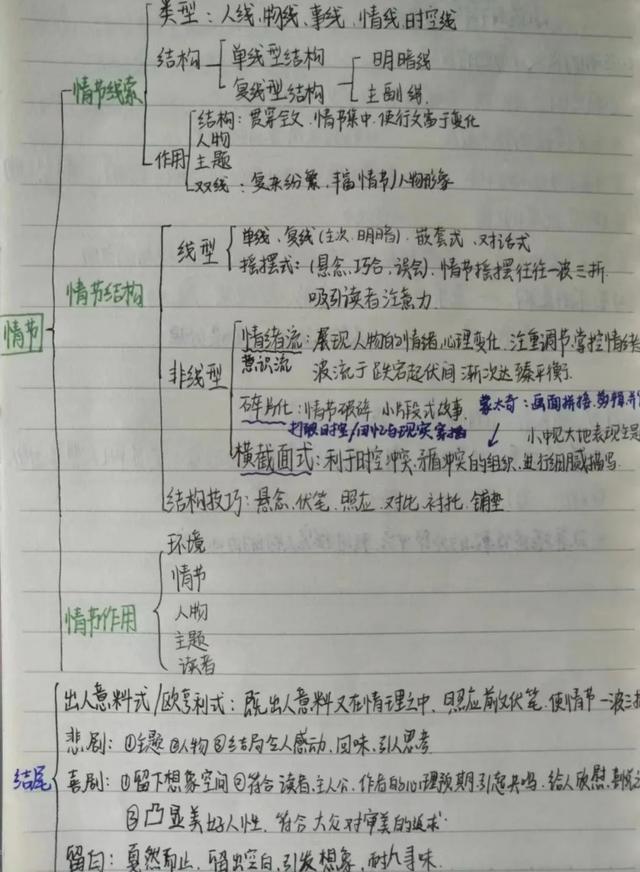 类型：人线、物线、事线、情线、时空线
情节线索
结构
单线型结构
明暗线
复线型结构
主副线
作用
结构：贯穿全文、情节集中、使行文富于变化
人物
主题
双线：复杂纷繁、丰富情节/人物形象
情节
情节结构
线型
单线、复线(主次、明暗)、嵌套式、对话式
摇摆式：(悬念、巧合、误会)、情节摇摆往往一波三折
吸引读者注意力.
非线型
情绪流：展现人物的情绪、心理变化、注重调节、掌控情绪
意识流
波流于跌宕起伏间渐次达臻平衡.
碎片化：情节破碎、小片段式故事、
蒙太奇：画面拼接、剪辑、
打破时空/回忆与现实穿插
小中见大地表现主
横截面式：利于时空冲突、矛盾冲突的组织、进行细腻描写.
结构技巧：悬念、伏笔、照应、对比、衬托、铺垫
情节作用
环境
情节
人物
主题
读者
结尾
出人意料式/欧亨利式：既出人意料又在情理之中、照应前文伏笔、使情节一波三
悲剧：①主题②人物③结局令人感动、回味、引人思考
喜剧：①留下想象空间②符合读者、主人公、作者的心理预期、引起共鸣、给人欣慰、喜悦之
③凸显美好人性、符合大众对审美的追求.
留白：戛然而止、留出空白、引发想象、耐人寻味.